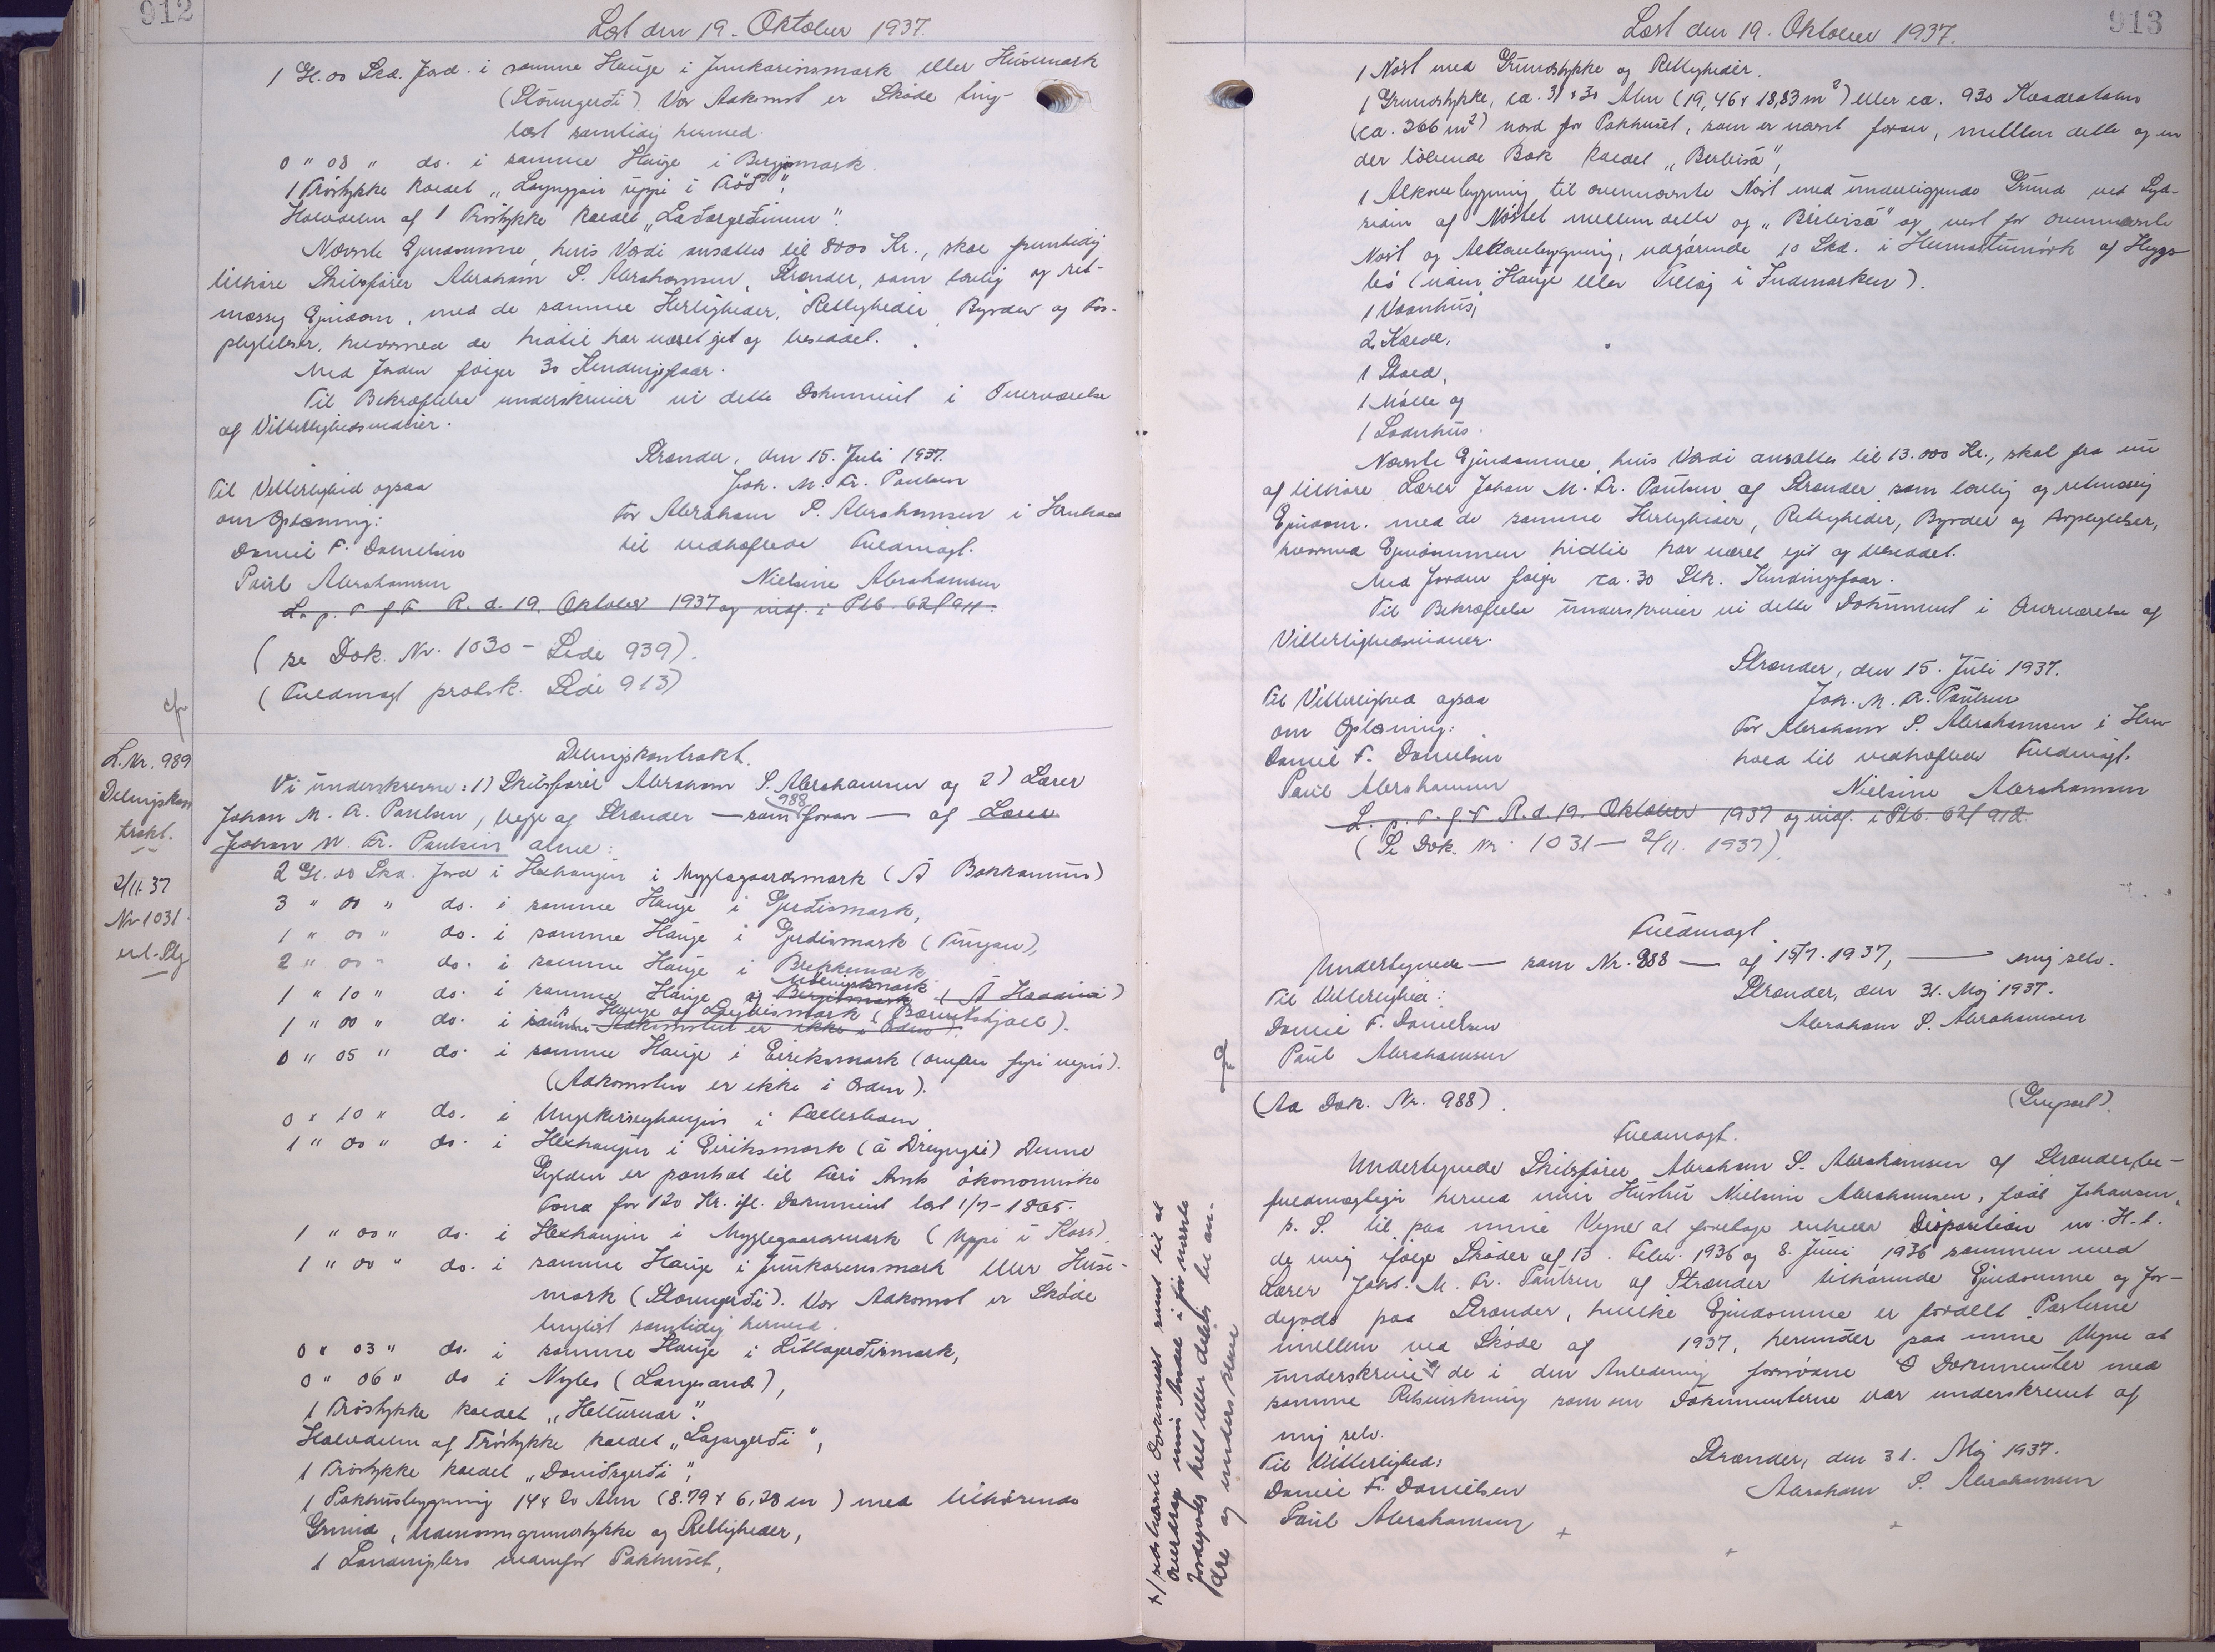 912
Læst den 19. Oktober 1937.
1 Gl. 00 Skd. Jord i samme Hauge i Junkarinsmark eller Húsumark
(Stórugerði). Vor Adkomst er Skøde ting-
læst samtidig hermed.
0 " 08 " do. i samme Hauge i Bergismark.
1 Trøstykke kaldet "Loyngjan uppi i Trøð",
Halvdelen af 1 Trøstykke kaldet "Laðargerðinum".
Nævnte Ejendomme, hvis Værdi ansættes til 8000 Kr., skal fremtidig
tilhøre Skibsfører Abraham S. Abrahamsen, Strænder, som lovlig og ret-
mæssig Ejendom, med de samme Herligheder, Rettigheder, Byrder og For-
pligtelser, hvormed de hidtil har været ejet og besiddet.
Med Jorden følger 30 Kendingsfaar.
Til Bekræftelse underskriver vi dette Dokument i Overværelse
af Vitterlighedsvidner.
Strænder, den 15. Juli 1937.
Til Vitterlighed ogsaa
Joh. M. Fr. Poulsen
om Oplæsning:
For Abraham S. Abrahamsen i Henhold
Daniel F. Danielsen
til vedhæftede Fuldmagt.
Poul Abrahamsen
Nielsine Abrahamsen
L. p. T. f. F. R. d. 19. Oktober 1937 og indf. i Ptb. 62/911.
(se Dok. Nr. 1030 - Side 939).
(Fuldmagt protok. Side 913)
L. Nr. 989
Delingskon
trakt.
2/11 37
Nr 1031
Delingskontrakt.
Vi underskrevne: 1) Skibsfører Abraham S. Abrahamsen og 2) Lærer
Johan M. Fr. Poulsen, begge af Strænder — som 988 foran — af Lærer
Johan M. Fr. Poulsen alene:
2 Gl. 00 Skd. Jord i Heahaugin i Mýglagaardsmark (Á Bakkanum)
3 " 00 " do. i samme Hauge i Gjerdismark,
1 " 00 " do. i samme Hauge i Gjerdismark (Tungan),
2 " 00 " do. i samme Hauge i Brekkemark
1 " 10 " do. i samme Hauge i Bergismark
1 " 00 " do. i samme Hauge
Adkomsten er ikke i Orden).
0 " 05 " do. i samme Hauge i Eiriksmark (oman fyri vegin).
(Adkomsten er ikke i Orden).
0 " 10 " do. i i Fællesham
1 " 00 " do. i Heahaugin i Eiriksmark (á Dreyngi) Denne
Gylden er pantsat til Færø Amts økonomiske
Fond for 120 Kr. ifl. Dokument læst 1/7-1865.
1 " 00 " do. i Heahaugin i Mýglegaardsmark (Uppi í Koss).
1 " 00 " do. i samme Hauge i Junkarinsmark eller Húsu-
mark (Stórugerði). Vor Adkomst er Skøde
tinglæst samtidig hermed.
0 " 03 " do. i samme Hauge i Litlagerðismark,
0 " 06 " do i Nyles (Langesand),
1 Trøstykke kaldet "Hellurnar".
Halvdelen af Trøstykke kaldet "Lagargerði",
1 Trøstykke kaldet "Daviðsgerði",
1 Pakhusbygning 14 x 20 Alen (8.79 x 6,28 m) med tilhørende
Grund, Udenomsgrundstykke og Rettigheder,
1 Landingsplads nedenfor Pakhuset,
913
Læst den 19. Oktober 1937.
1 Nøst med Grundstykke og Rettigheder.
1 Grundstykke, ca. 31 x 30 Alen (19,46 x 18,83 m²) eller ca. 930 Kvadratalen
(ca. 366 m²) nord for Pakhuset, som er nævnt foran, mellem dette og en
der løbende Bæk kaldet "Berbisá",
1 Altanbygning til ovennævnte Nøst med underliggende Grund ved Syd-
siden af Nøstet mellem dette og "Berbisá" og vest for ovennævnte
Nøst og Altanbygning, udgørende 10 Skd. i Heimastumørk af Hegge-
bø (uden Hauge eller Tillæg i Indmarken).
1 Vaanhus,
2 Kælde,
1 Stald,
1 Mølle og
1 Ladehus.
Nævnte Ejendomme, hvis Værdi ansættes til 13.000 Kr., skal fra nu
af tilhøre Lærer Johan M. Fr. Poulsen af Strænder som lovlig og retmæssig
Ejendom. med de samme Herligheder, Rettigheder, Byrder og Forpligtelser,
hvormed Ejendommen hidtil har været ejet og besiddet.
Med Jorden følger ca. 30 Stk. Kendingsfaar.
Til Bekræftelse underskriver vi dette Dokument i Overværelse af
Vitterlighedsvidner.
Strænder, den 15. Juli 1937.
Til Vitterlighed ogsaa
Joh. M. Fr. Poulsen
om Oplæsning:
For Abraham S. Abrahamsen i Hen-
Daniel F. Danielsen
hold til vedhæftede Fuldmagt.
Poul Abrahamsen
Nielsine Abrahamsen
L. p. T. f. F. R. d. 19. Oktober 1937 og indf. i Ptb. 62/912.
(Se Dok. Nr. 1031 — 2/11. 1937).
Fuldmagt
Undertegnede — som Nr. 988 — af 15/7. 1937, — mig selv.
Til Vitterlighed:
Strænder, den 31. Maj 1937.
Daniel F. Danielsen
Abraham S. Abrahamsen
Poul Abrahamsen
(Aa Dok. Nr. 988).
(Genpart).
Fuldmagt.
Undertegnede Skibsfører Abraham S. Abrahamsen af Strænder be-
fuldmægtiger herved min Hustru Nielsine Abrahamsen, født Johansen,
p. S. til paa mine Vegne at foretage enhver Disposition m. H. t.
de mig ifølge Skøder af 13. Febr. 1936 og 8. Juni 1936 sammen med
Lærer Johs. M. Fr. Poulsen af Strænder tilhørende Ejendomme og Jor-
degods paa Strænder, hvilke Ejendomme er fordelt Parterne
imellem ved Skøde af 1937, herunder paa mine Vegne at
underskrive de i den Anledning fornødne Dokumenter med
samme Retsvirkning som om Dokumenterne var underskrevet af
mig selv.
Til Vitterlighed:
Strænder, den 31. Maj 1937.
Daniel F. Danielsen
Abraham S. Abrahamsen
Poul Abrahamsen
+) sidstnævnte Dokument samt til at
overdrage min Andel i før nævnte
Jordegods helt eller delvis til an-
dre og underskrive